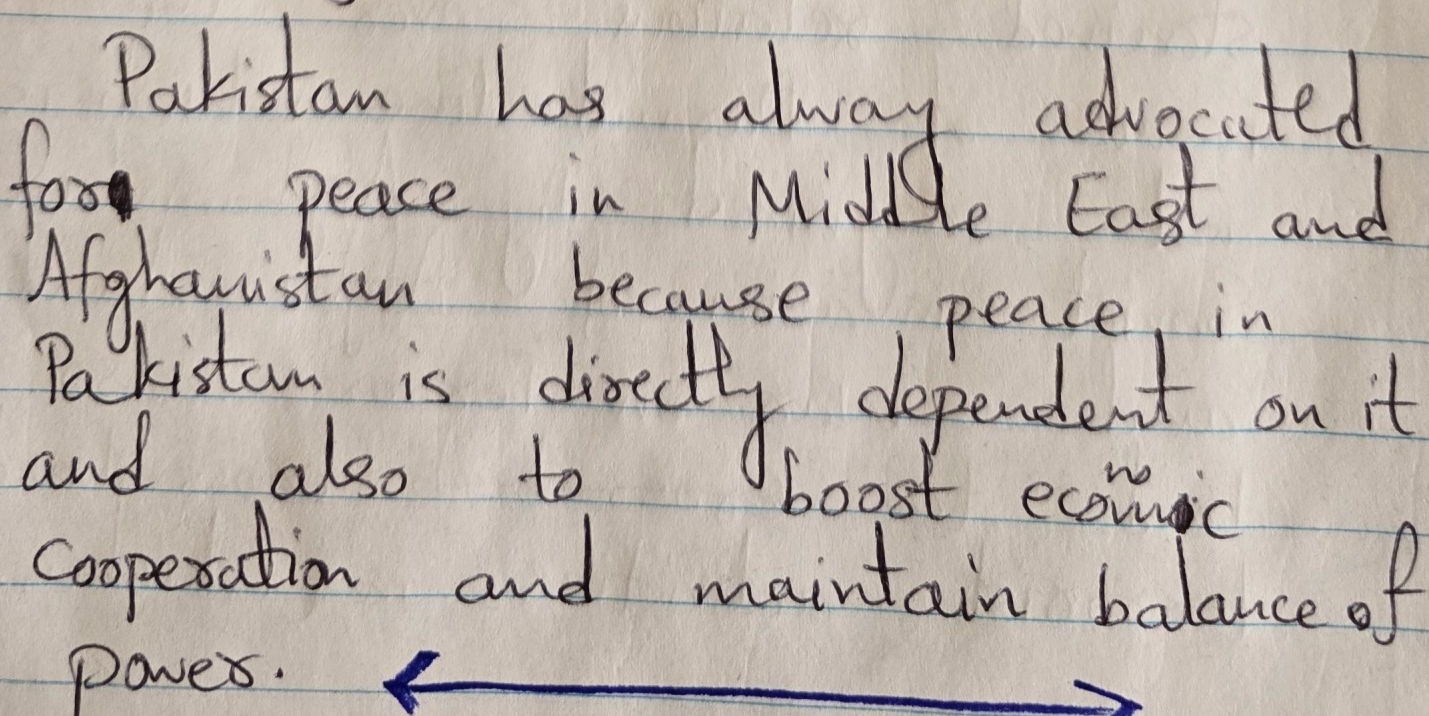 Pakistan has alway advocated
for peace in Middle East and
Afghanistan because peace in
Pakistan is directly dependent on it
and also to boost economic
cooperation and maintain balance of
power.